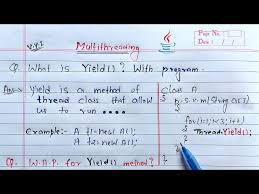 V.V.I
Multithreading
Page No.
Date :
Q. What is Yield()? With program.
Ans:- Yield is a method of
thread class that allow
us to run ----
Example:- A t1=new A();
A t2=new A();
class A
{
p.s.v.m(String a[])
{
for(i=1;i<3;i++)
{
Thread.Yield();
}
}
}
Q. W.A.P. for Yield() method?